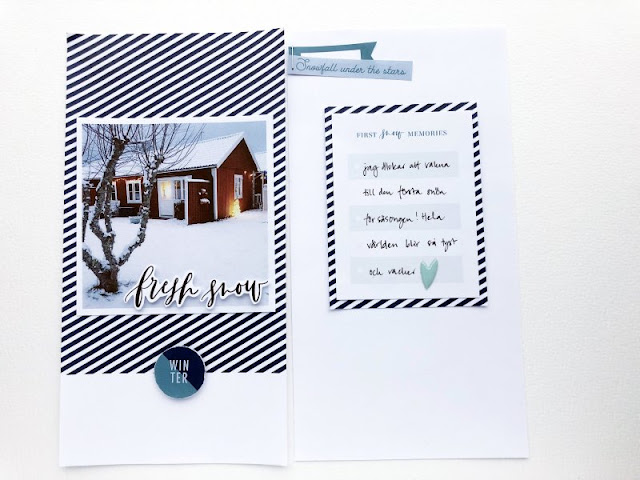 Snowfall under the stars
FIRST snow MEMORIES
jag älskar att vakna
till den första snön
för säsongen! Hela
världen blir så tyst
och vacker
fresh snow
WIN
TER